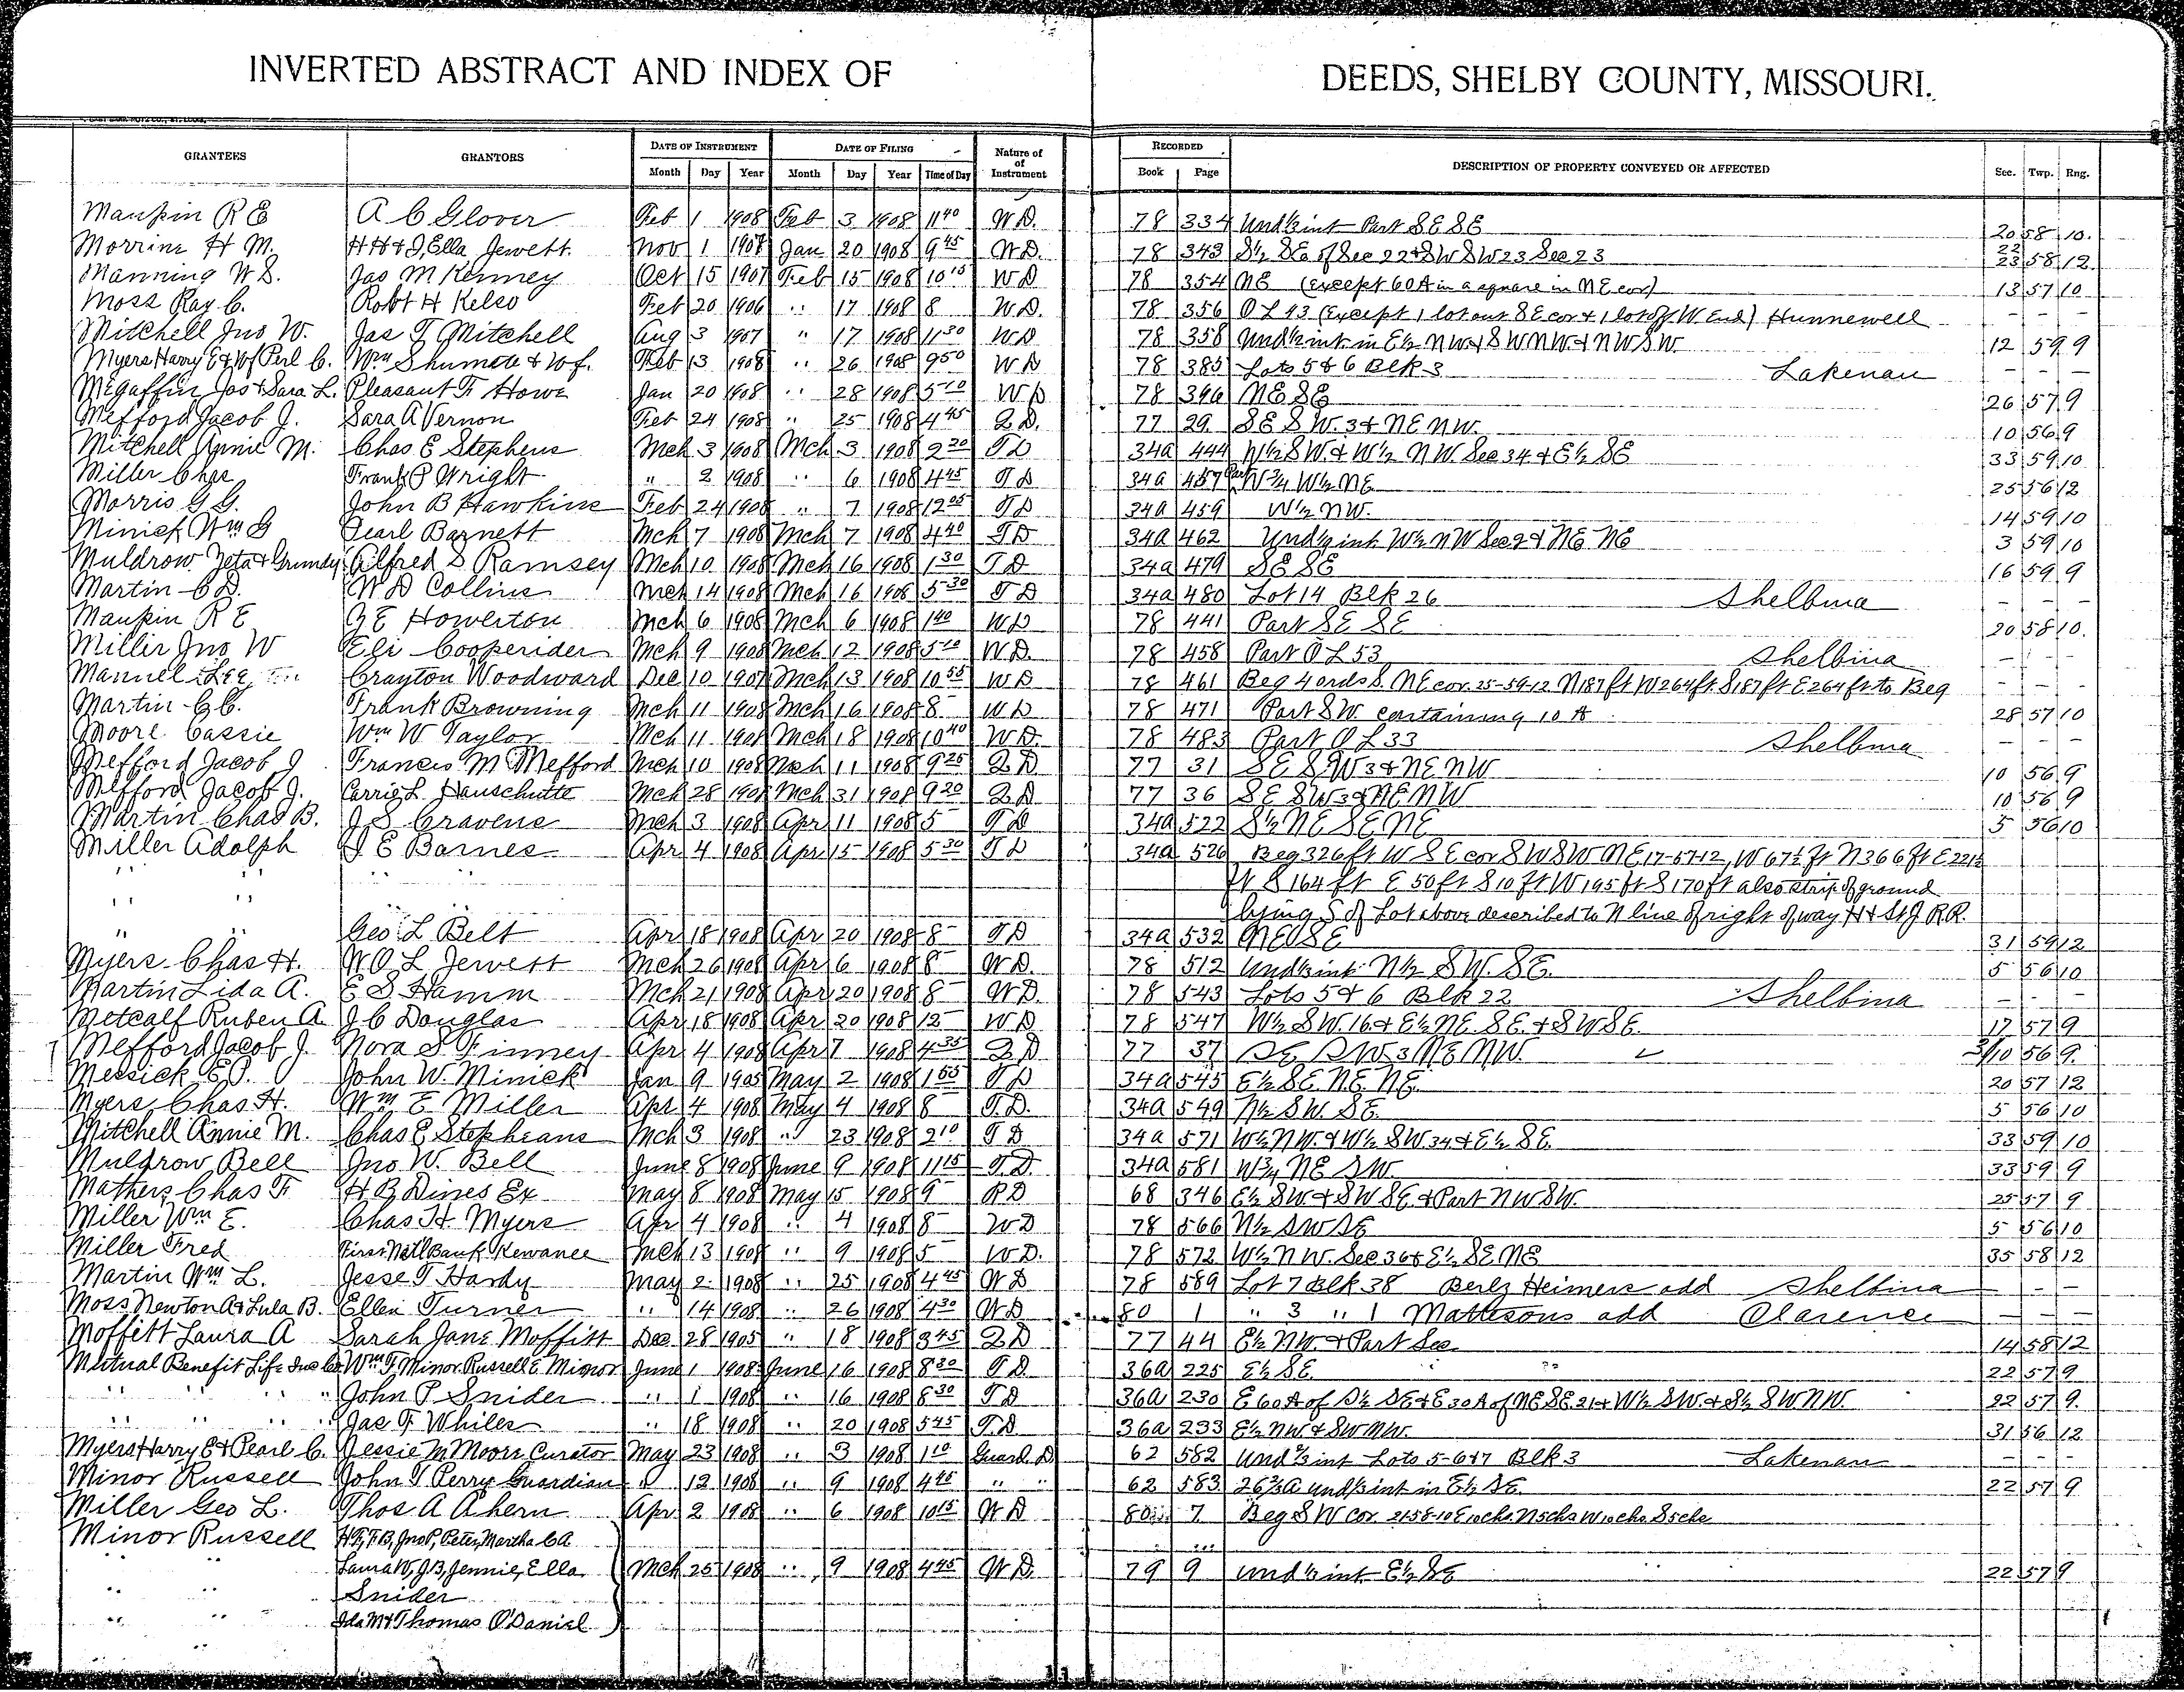 INVERTED ABSTRACT AND INDEX OF DEEDS, SHELBY COUNTY, MISSOURI.
GRANTEES GRANTORS DATE OF INSTRUMENT DATE OF FILING Nature of of Instrument RECORDED DESCRIPTION OF PROPERTY CONVEYED OR AFFECTED Sec. Twp. Rng.
Month Day Year Month Day Year Time of Day Book Page
Maupin R E A C Glover Feb 1 1908 Feb 3 1908 11 40 W D. 78 334 Und ½ int Part SE SE 20 58 10.
Morrine H M. H H & J, Ella Jewett. Nov 1 1907 Jan 20 1908 9 45 W D. 78 343 S½ SE of Sec 22 & SW SW 23 Sec 23 22 23 58 12
Manning W S. Jas M Kenney Oct 15 1907 Feb 15 1908 10 15 W D 78 354 NE (Except 60 A in a square in NE cor) 13 57 10
Moss Ray C. Robt H Kelso Feb 20 1906 " 17 1908 8 W D. 78 356 O L 43 (Except 1 lot out SE cor & 1 lot off W End) Hunnewell - - -
Mitchell Jno W. Jas T Mitchell Aug 3 1907 " 17 1908 11 30 W D 78 358 Und ½ int in E½ NW & SW NW & NW SW. 12 59 9
Myers Harry E & Wf Perl C. Wm Shumate & Wf. Feb 13 1908 " 26 1908 9 50 W D 78 385 Lots 5 & 6 Blk 3 Lakenan - - -
Megaffin Jos & Sara L. Pleasant F Howe Jan 20 1908 " 28 1908 5 10 W D 78 396 NE SE 26 57 9
Mefford Jacob J. Sara A Vernon Feb 24 1908 " 25 1908 4 45 Q D. 77 29 SE SW. 3 & NE NW. 10 56 9
Mitchell Annie M. Chas E Stephens Mch 3 1908 Mch 3 1908 2 20 T D 34a 444 W½ SW. & W½ NW. Sec 34 & E½ SE 33 59 10
Miller Chas Frank P Wright " 2 1908 " 6 1908 4 45 T D 34a 457 Part W ¾ W½ NE 25 56 12
Morris G G. John B Hawkins Feb 24 1908 " 7 1908 12 05 T D 34a 459 W½ NW. 14 59 10
Minick Wm G Pearl Barnett Mch 7 1908 Mch 7 1908 4 40 T D 34a 462 Und ½ int W½ NW Sec 2 & NE NE 3 59 10
Muldrow Zeta & Grundy Alfred S Ramsey Mch 10 1908 Mch 16 1908 1 30 T D 34a 479 SE SE 16 59 9
Martin C D. W D Collins Mch 14 1908 Mch 16 1908 5 30 T D 34a 480 Lot 14 Blk 26 Shelbina - - -
Maupin R E G E Howerton Mch 6 1908 Mch 6 1908 1 40 W D 78 441 Part SE SE 20 58 10.
Miller Jno W Eli Cooperider Mch 9 1908 Mch 12 1908 5 10 W D. 78 458 Part O L 53 Shelbina - - -
Manuel Lee Crayton Woodward Dec 10 1907 Mch 13 1908 10 55 W D 78 461 Beg 4 ords S. NE cor. 25-59-12 N 187 ft W 264 ft. S 187 ft E 264 ft to Beg - - -
Martin C C. Frank Browning Mch 11 1908 Mch 16 1908 8 W D 78 471 Part SW containing 10 A 28 57 10
Moore Cassie Wm W Taylor Mch 11 1908 Mch 18 1908 10 40 W D. 78 483 Part O L 33 Shelbina - - -
Mefford Jacob J Francis M Mefford Mch 10 1908 Mch 11 1908 9 25 Q D 77 31 SE SW 3 & NE NW 10 56 9
Mefford Jacob J. Carrie L Hauschutte Mch 28 1908 Mch 31 1908 9 20 Q D 77 36 SE SW 3 & NE NW 10 56 9
Martin Chas B. J S Cravens Mch 3 1908 Apr 11 1908 5 T D 34a 522 S½ NE SE NE 5 56 10
Miller Adolph J E Barnes Apr 4 1908 Apr 15 1908 5 30 T D 34a 526 Beg 326 ft W SE cor SW SW NE 17-57-12, W 67½ ft N 366 ft E 221½
" " " " ft S 164 ft E 50 ft S 10 ft W 195 ft S 170 ft also strip of ground
" " lying S of Lot above described to N line of right of way H & St J. R.R.
" " Geo L Belt Apr 18 1908 Apr 20 1908 8 T D 34a 532 NE SE 31 59 12
Myers Chas H. W O L Jewett Mch 26 1908 Apr 6 1908 8 W D. 78 512 Und ½ int N½ SW. SE. 5 56 10
Martin Lida A. E S Hamm Mch 21 1908 Apr 20 1908 8 W D. 78 543 Lots 5 & 6 Blk 22 Shelbina - - -
Metcalf Ruben A. J C Douglas Apr 18 1908 Apr 20 1908 12 W D 78 547 W½ SW. 16 & E½ NE. SE. & SW SE. 17 57 9
Mefford Jacob J. Nora S Finney Apr 4 1908 Apr 7 1908 4 35 Q D 77 37 SE SW 3 NE NW. 3/10 56 9.
Messick E J. John W. Minick Jan 9 1905 May 2 1908 1 55 T D 34a 545 E½ SE. NE. NE. 20 57 12
Myers Chas H. Wm E Miller Apr 4 1908 May 4 1908 8 T. D. 34a 549 N½ SW. SE. 5 56 10
Mitchell Annie M. Chas E Stepheans Mch 3 1908 " 23 1908 2 10 T D 34a 571 W½ NW. & W½ SW 34 & E½ SE. 33 59 10
Muldrow Bell Jno W. Bell June 8 1908 June 9 1908 11 15 T. D. 34a 581 W ¾ NE SW. 33 59 9
Mathers Chas F H B Dines Ex May 8 1908 May 15 1908 9 R D 68 346 E½ SW. & SW SE. & Part NW SW. 25 57 9
Miller Wm E. Chas H. Myers Apr 4 1908 " 4 1908 8 W D 78 566 N½ SW SE 5 56 10
Miller Fred First Natl Bank Kewanee Mch 13 1908 " 9 1908 5 W D. 78 572 W½ NW. Sec 36 & E½ SE NE 35 58 12
Martin Wm L. Jesse T Hardy May 2 1908 " 25 1908 4 45 W D 78 589 Lot 7 Blk 38 Berly Heimers add Shelbina - - -
Moss Newton A & Lula B. Ellen Turner " 14 1908 " 26 1908 4 30 W D 80 1 " 3 " 1 Mathesons add Clarence - - -
Moffitt Laura A Sarah Jane Moffitt Dec 28 1905 " 18 1908 3 45 Q D 77 44 E½ NW. & Part Sec 14 58 12
Mutual Benefit Life Ins Co Wm F Minor. Russell E Mignor June 1 1908 June 16 1908 8 30 T. D. 36a 225 E½ SE. 22 57 9
" " " " John P Snider " 1 1908 " 16 1908 8 30 T D 36a 230 E 60 A of S½ SE & E 30 A of NE SE. 21 & W½ SW. & S½ SW NW. 22 57 9.
" " " " Jas F Whiles " 18 1908 " 20 1908 5 45 T. D 36a 233 E½ NW & SW NW. 31 56 12
Myers Harry E & Pearl C. Jessie M Moore Curator May 23 1908 " 3 1908 1 10 Guard. D 62 582 Und ⅔ int Lots 5-6 & 7 Blk 3 Lakenan - - -
Minor Russell John T Perry Guardian " 12 1908 " 9 1908 4 45 " " 62 583 26⅔ A und ⅓ int in E½ SE. 22 57 9
Miller Geo L. Thos A Ahern Apr 2 1908 " 6 1908 10 15 W D 80 7 Beg SW cor. 21-58-10 E 10 chs. N 5 chs W 10 chs. S 5 chs
Minor Russell H T, F B, Jno P, Peter, Martha C A
Laura W, J B, Jennie, Ella Mch 25 1908 " 9 1908 4 45 W D. 79 9 und ½ int E½ SE 22 57 9
" " Snider
" " Ida M & Thomas O'Daniel